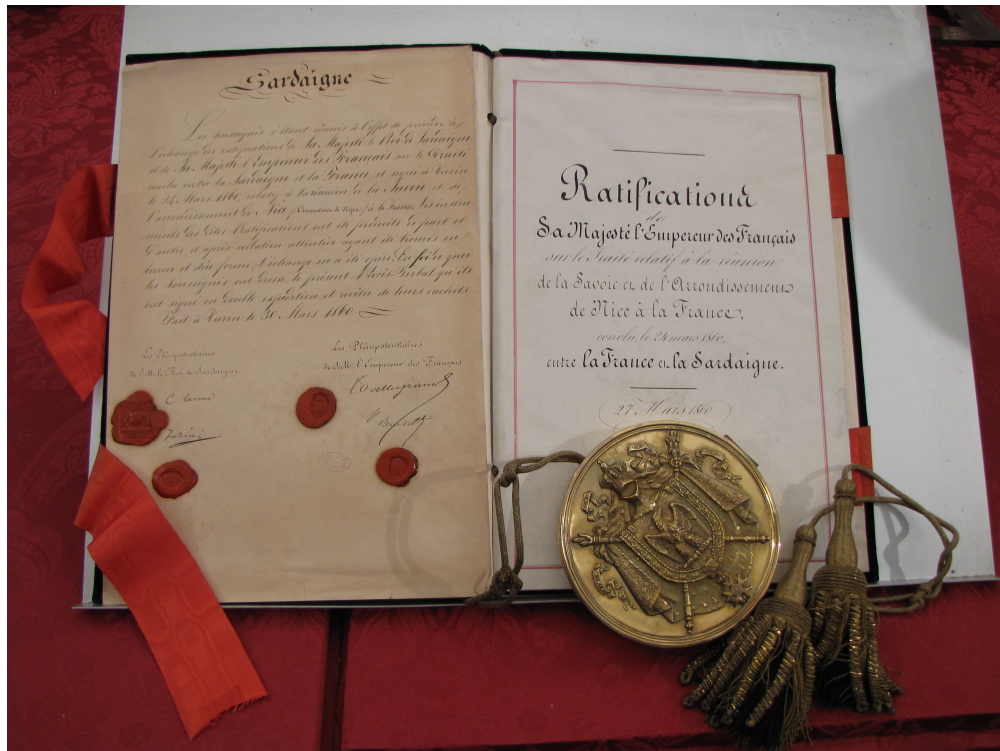 Sardaigne
Les soussignés s'étant réunis à l'effet de procéder à
l'échange des ratifications de Sa Majesté le Roi de Sardaigne
et de Sa Majesté l'Empereur des Français sur le Traité
conclu entre la Sardaigne et la France, et signé à Turin
le 24 Mars 1860, relatif à la réunion de la Savoie et de
l'arrondissement de Nice (Circondario di Nizza) à la France, les instru-
ments des dites Ratifications ont été produits de part et
d'autre, et après collation attentive ayant été trouvés en
bonne et due forme, l'échange en a été opéré. En foi de quoi
les soussignés ont dressé le présent Procès Verbal qu'ils
ont signé en double expédition et revêtu de leurs cachets.
Fait à Turin le 30 Mars 1860.
Les Plénipotentiaires
de S. M. le Roi de Sardaigne
C. Cavour
Farini
Les Plénipotentiaires
de S. M. l'Empereur des Français
Talleyrand
Benedetti
Ratifications
de
Sa Majesté l'Empereur des Français
sur le Traité relatif à la réunion
de la Savoie et de l'Arrondissement
de Nice à la France,
conclu, le 24 mars 1860,
entre la France et la Sardaigne.
27 Mars 1860